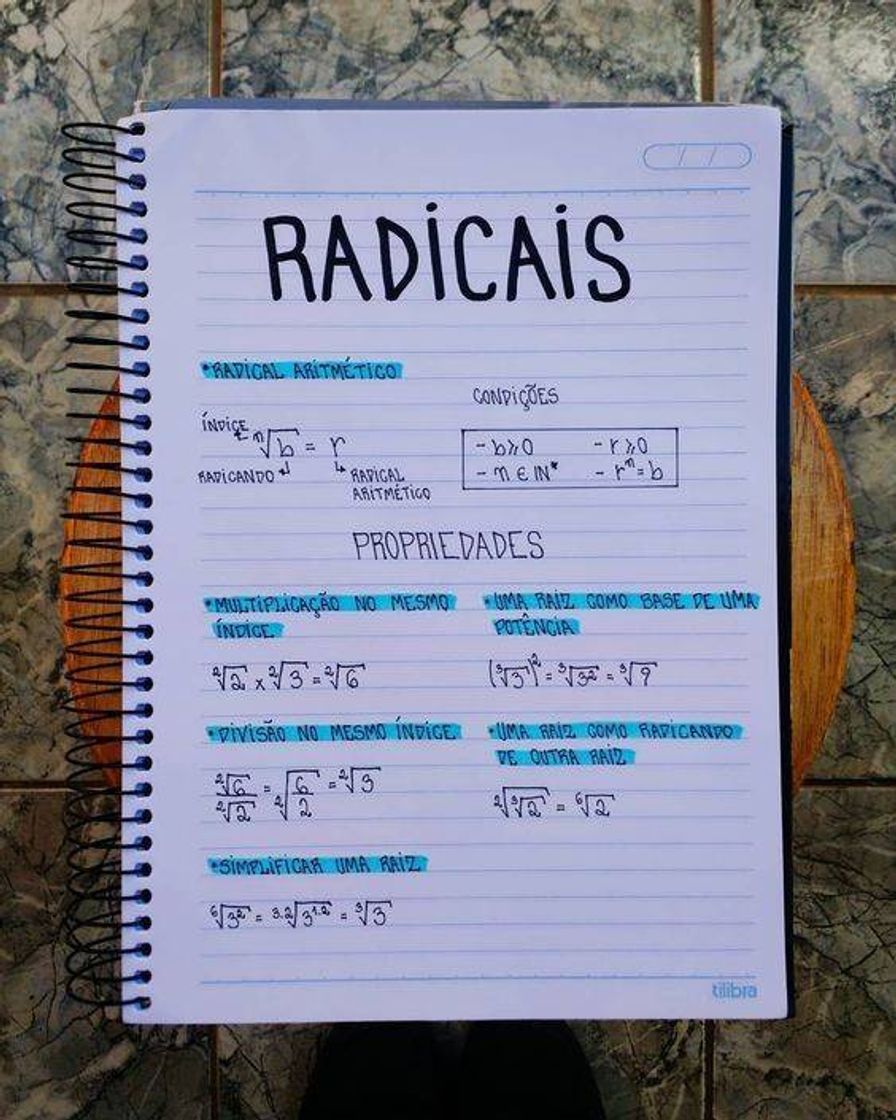 RADICAIS
•RADICAL ARITMÉTICO
CONDIÇÕES
ÍNDICE
ⁿ√b = r
RADICANDO
RADICAL
ARITMÉTICO
- b⩾0 - r⩾0
- n ∈ IN* - rⁿ=b
PROPRIEDADES
•MULTIPLICAÇÃO NO MESMO
ÍNDICE
²√2 x ²√3 = ²√6
•UMA RAIZ COMO BASE DE UMA
POTÊNCIA
(³√3¹)² = ³√3² = ³√9
•DIVISÃO NO MESMO ÍNDICE
²√6/²√2 = ²√(6/2) = ²√3
•UMA RAIZ COMO RADICANDO
DE OUTRA RAIZ
²√³√2 = ⁶√2
•SIMPLIFICAR UMA RAIZ
⁶√3² = ³·²√3¹·² = ³√3
tilibra